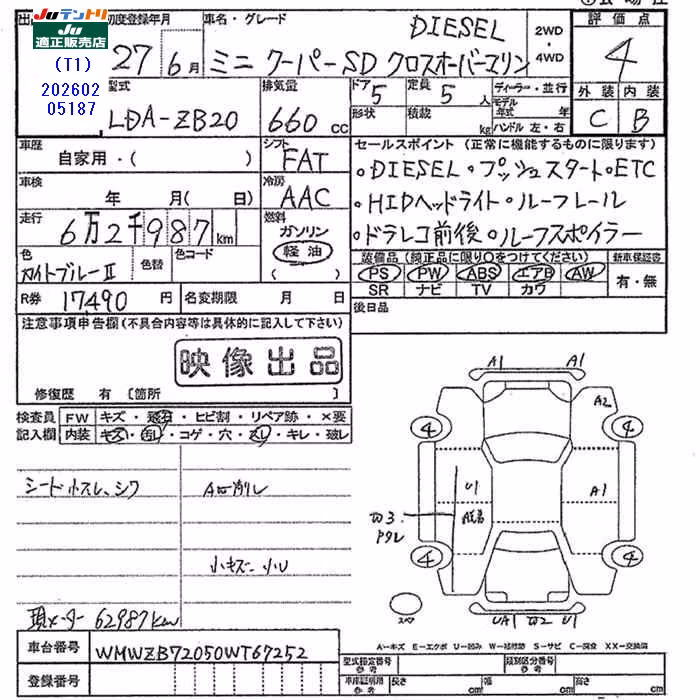 JUテントリ
JU
適正販売店
(T1)
202602
05187
初度登録年月
27 6月
車名・グレード
DIESEL
ミニ クーパーSD クロスオーバー
2WD
・
4WD
評価点
4
外装 内装
C B
型式
LDA-ZB20
排気量
660 cc
ドア
5
定員
5人
形状
積載
kg
ディーラー・並行
モデル
年式 年
ハンドル 左・右
車歴
自家用・( )
シフト
FAT
車検
年 月(日 )
冷房
AAC
走行
6万2千987km
燃料
ガソリン
軽油
( )
色
ライトブルーII
色替
色コード
R券 17490 円
名変期限 月 日
セールスポイント(正常に機能するものに限ります)
・DIESEL・プッシュスタート・ETC
・HIDヘッドライト・ルーフレール
・ドラレコ前後・ルーフスポイラー
装備品(純正品に限り○をつけてください)
PS PW ABS エアB AW
SR ナビ TV カワ
新車保証書
有・無
後日品
注意事項申告欄(不具合内容等は具体的に記入して下さい)
映像出品
修復歴 有 [箇所 ]
検査員
記入欄
FW キズ・飛石・ヒビ割・リペア跡・×要
内装 キズ・汚レ・コゲ・穴・スレ・キレ・破レ
シート小スレ、シワ
A石削レ
小キズ 小U
現メーター 62987km
A1 A1
A2
4 4
U1
A1
4 4
スペア
UA1 U1
A-キズ E-エクボ U-凹み W-補修跡 S-サビ C-腐食 XX-交換済
車台番号
WMWZB72050WT67252
登録番号
型式指定番号
参考
類別区分番号
車庫証明用
参考
長さ
cm
幅
cm
高さ
cm